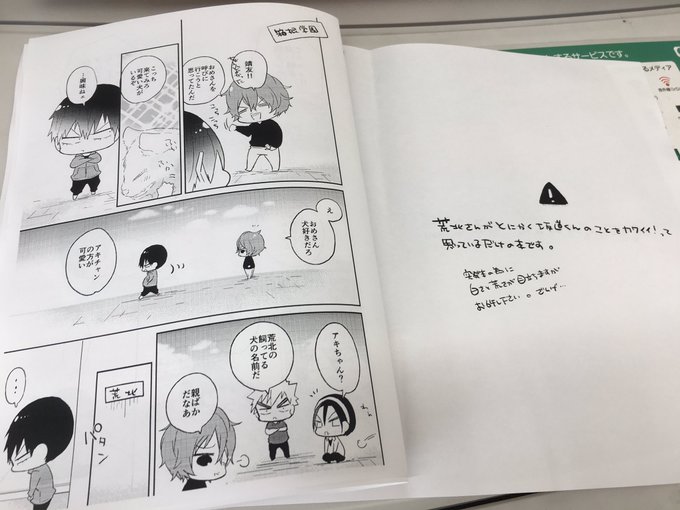 箱根学園
靖友!!
おめさんを
呼びに
行こうと
思ってたんだ
こっち
来てみろ
可愛い犬が
いるぞ
…興味ねェ
え
おめさん
犬好きだろ
アキチャン
の方が
可愛い
アキちゃん?
荒北の
飼ってる
犬の名前だ
親ばか
だなあ
荒北
パタン
…
荒北さんがとにかく坂道くんのことをカワイイ!って
思っているだけの本です。
お許し下さい。
するサービスです。
るメディア